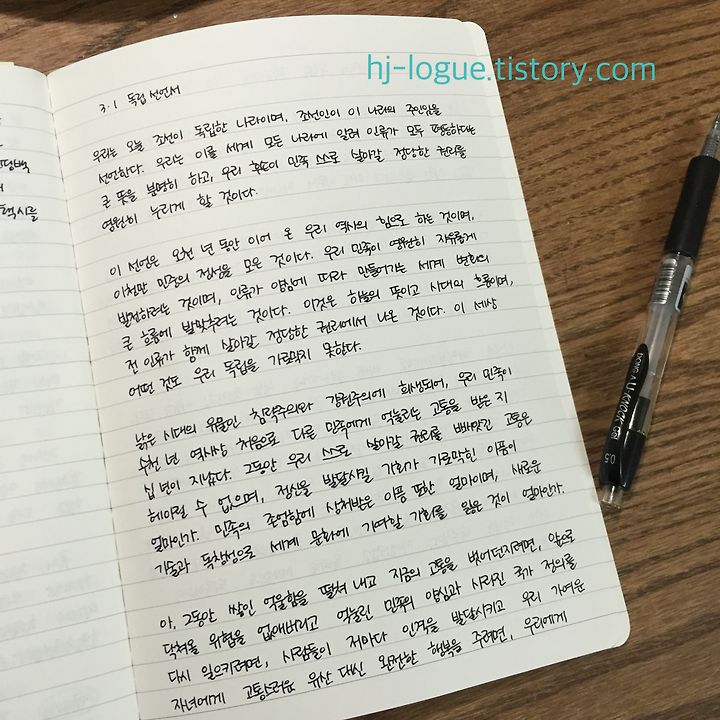 hj-logue.tistory.com
3·1 독립 선언서
우리는 오늘 조선이 독립한 나라이며, 조선인이 이 나라의 주인임을
선언한다. 우리는 이를 세계 모든 나라에 알려 인류가 모두 평등하다는
큰 뜻을 분명히 하고, 우리 후손이 민족 스스로 살아갈 정당한 권리를
영원히 누리게 할 것이다.
이 선언은 오천 년 동안 이어 온 우리 역사의 힘으로 하는 것이며,
이천만 민중의 정성을 모은 것이다. 우리 민족이 영원히 자유롭게
발전하려는 것이며, 인류가 양심에 따라 만들어가는 세계 변화의
큰 흐름에 발맞추려는 것이다. 이것은 하늘의 뜻이고 시대의 흐름이며,
전 인류가 함께 살아갈 정당한 권리에서 나온 것이다. 이 세상
어떤 것도 우리 독립을 가로막지 못한다.
낡은 시대의 유물인 침략주의와 강권주의에 희생되어, 우리 민족이
수천 년 역사상 처음으로 다른 민족에게 억눌리는 고통을 받은 지
십 년이 지났다. 그동안 우리 스스로 살아갈 권리를 빼앗긴 고통은
헤아릴 수 없으며, 정신을 발달시킬 기회가 가로막힌 아픔이
얼마인가. 민족의 존엄함에 상처받은 아픔 또한 얼마이며, 새로운
기술과 독창성으로 세계 문화에 기여할 기회를 잃은 것이 얼마인가.
아, 그동안 쌓인 억울함을 떨쳐 내고 지금의 고통을 벗어던지려면, 앞으로
닥쳐올 위협을 없애버리고 억눌린 민족의 양심과 사라진 국가 정의를
다시 일으키려면, 사람들이 저마다 인격을 발달시키고 우리 가여운
자녀에게 고통스러운 유산 대신 완전한 행복을 주려면, 우리에게
DONG-A U-KNOCK
0.5